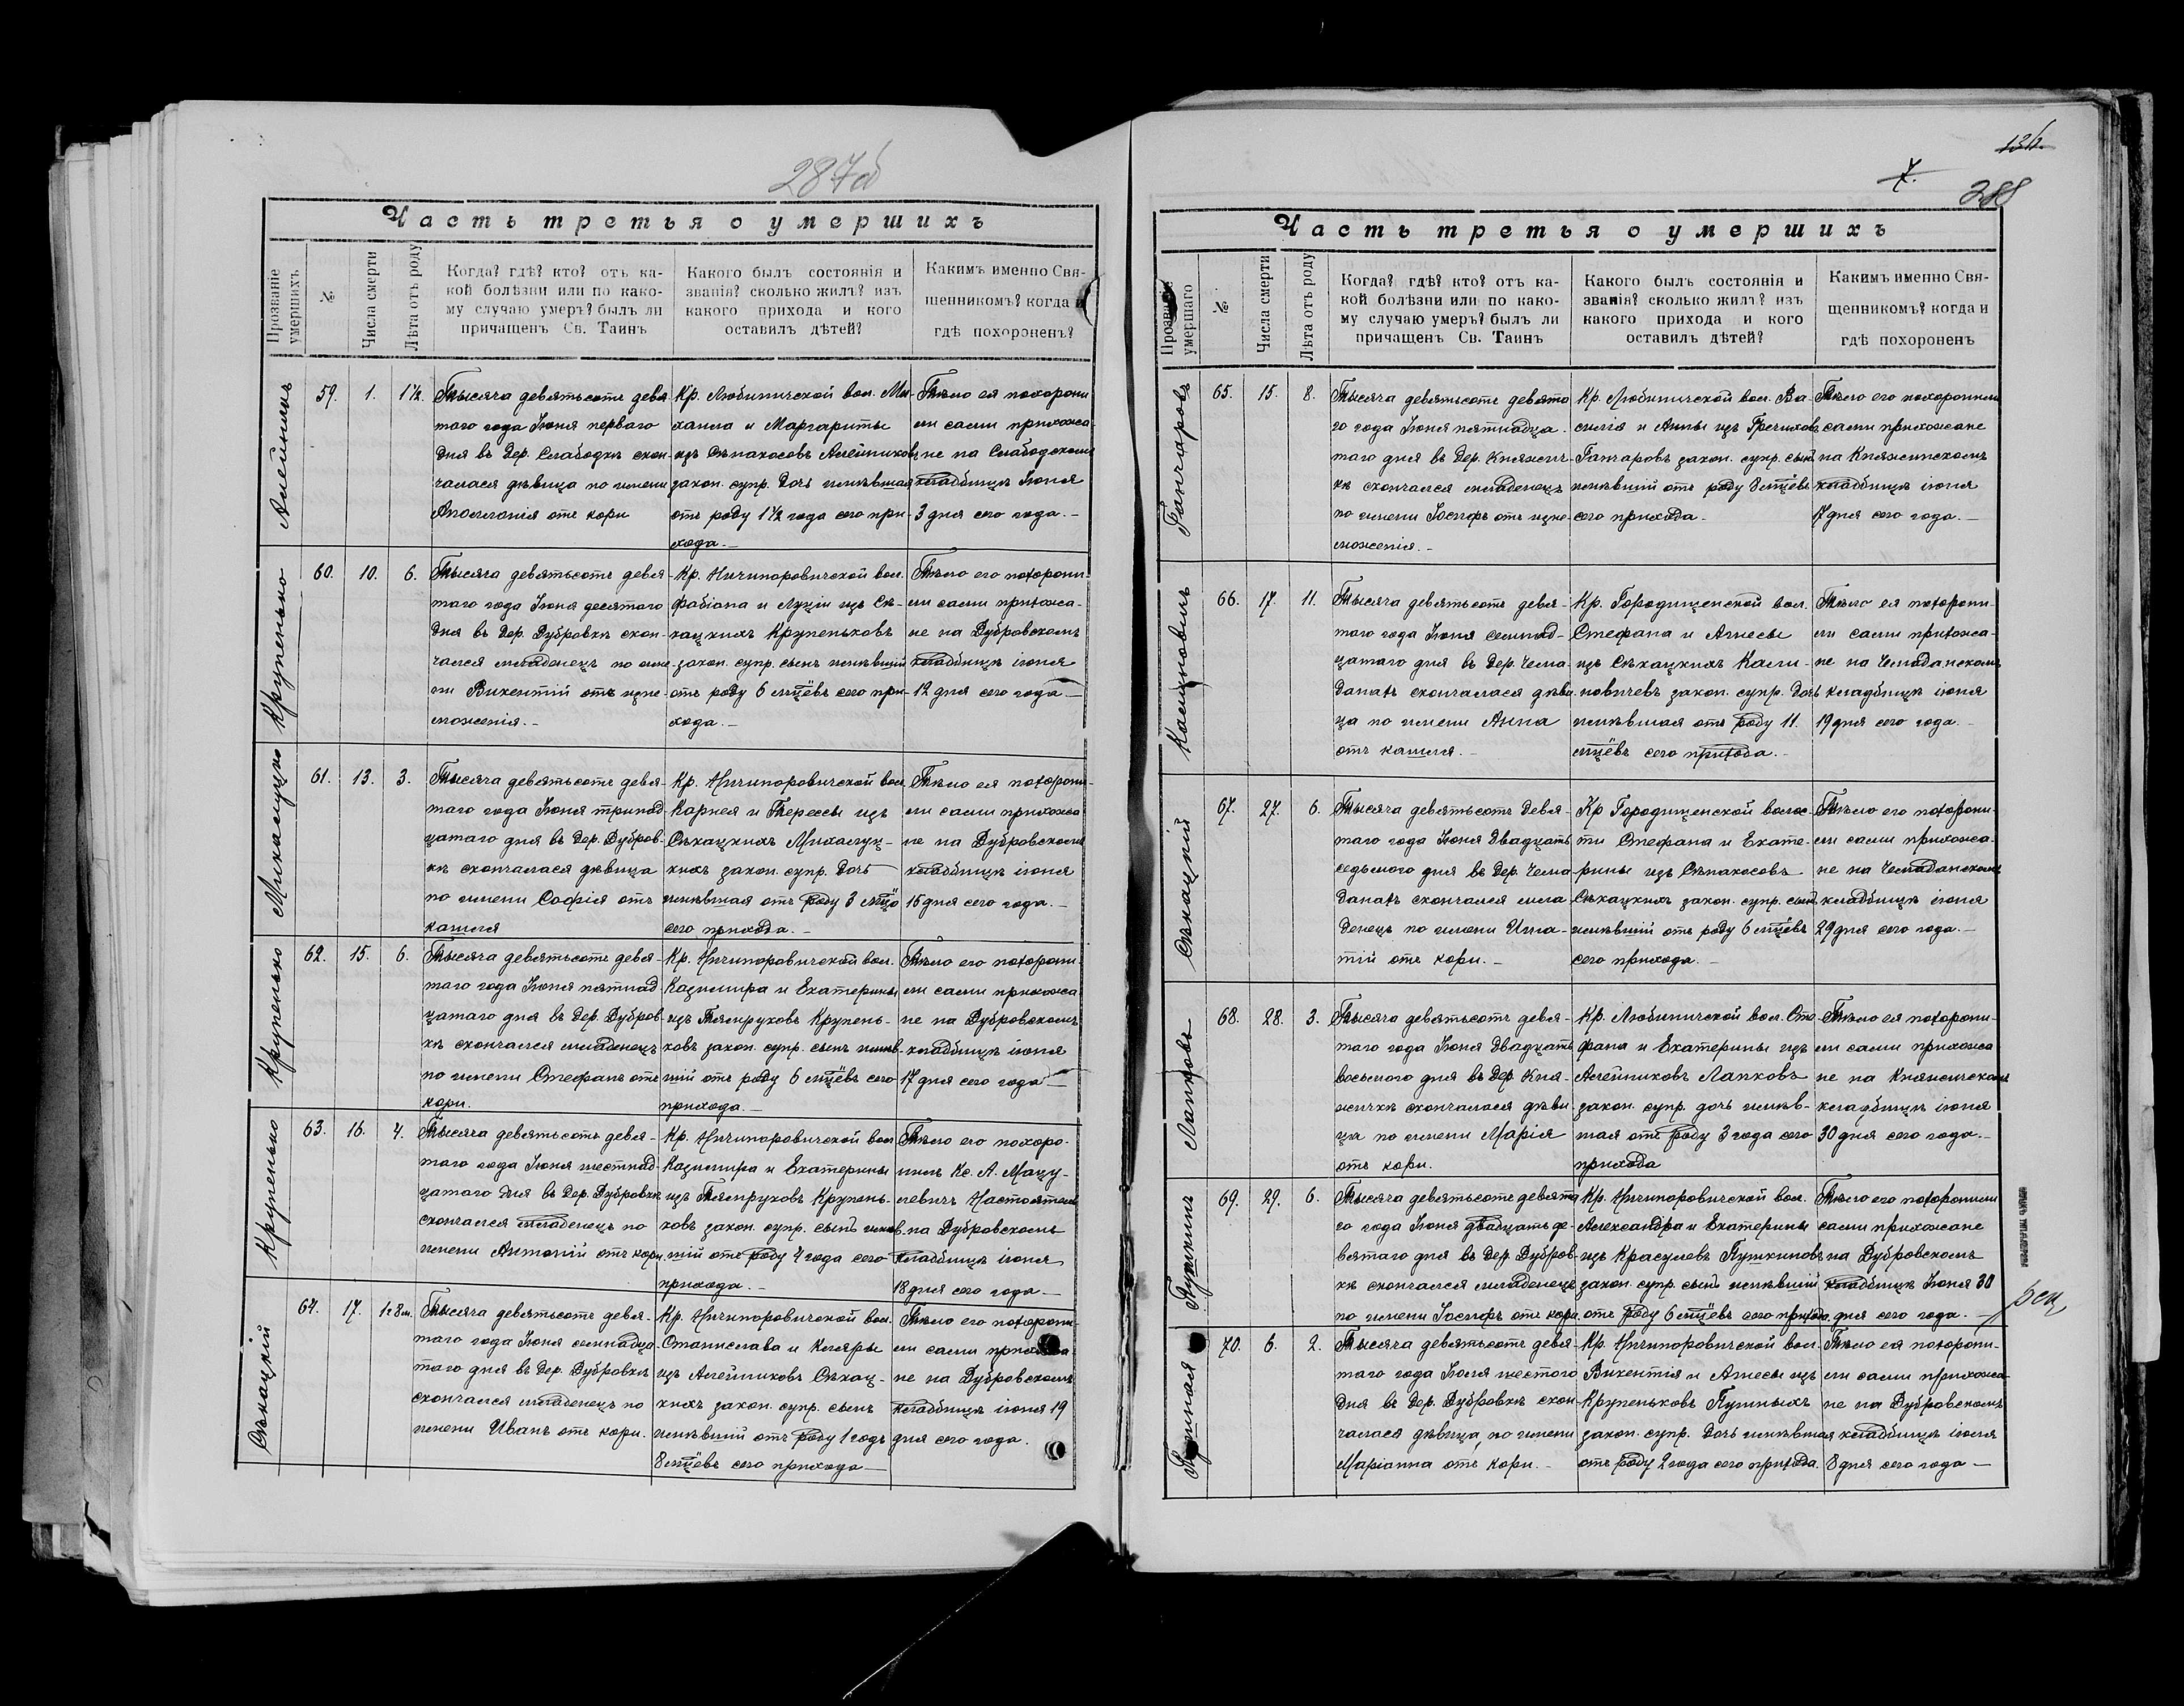 287об
Часть третья о умершихъ
Прозваніе умершихъ
№
Числа смерти
Лѣта отъ роду
Когда? гдѣ? кто? отъ ка-
кой болѣзни или по како-
му случаю умеръ? былъ ли
причащенъ Св. Таинъ
Какого былъ состоянія и
званія? сколько жилъ? изъ
какого прихода и кого
оставилъ дѣтей?
Какимъ именно Свя-
щенникомъ? когда и
гдѣ похороненъ?
Алейникъ
59.
1.
1½.
Тысяча девятьсотъ девя-
таго года Іюня перваго
дня въ дер. Слабодкѣ скон-
чалася дѣвица по имени
Апполонія отъ кори
Кр. Любиничской вол. Ми-
хаила и Маргариты
изъ Сѣнакосовъ Алейниковъ
закон. супр. дочь имѣвшая
отъ роду 1½ года сего при-
хода.-
Тѣло ея похорони
ли сами прихожа-
не на Слабодскомъ
кладбищѣ Іюня
3 дня сего года.-
Крупенько
60.
10.
6.
Тысяча девятьсотъ девя-
таго года Іюня десятаго
дня въ дер. Дубровкѣ скон-
чался младенецъ по име-
ни Викентій отъ изне-
моженія.-
Кр. Ничипоровичской вол.
Фабіана и Луціи изъ Сѣ-
кацкихъ Крупеньковъ
закон. супр. сынъ имѣвшій
отъ роду 6 мцёвъ сего при-
хода.-
Тѣло его похорони-
ли сами прихожа-
не на Дубровскомъ
кладбищѣ іюня
12 дня сего года-
Михалуцко
61.
13.
3.
Тысяча девятьсотъ девя-
таго года Іюня тринад-
цатаго дня въ дер. Дубров-
кѣ скончалася дѣвица
по имени Софія отъ
кашля
Кр. Ничипоровичской вол.
Карнея и Терессы изъ
Сѣкацкихъ Михалуц-
кихъ закон. супр. дочь
имѣвшая отъ роду 3 мцо
сего прихода.-
Тѣло ея похорони-
ли сами прихожа
не на Дубровскомъ
кладбищѣ іюня
15 дня сего года.-
Крупенько
62.
15.
6.
Тысяча девятьсотъ девя-
таго года Іюня пятнад-
цатаго дня въ дер. Дубров-
кѣ скончался младенецъ
по имени Стефанъ отъ
кори.
Кр. Ничипоровичской вол.
Казимира и Екатерины
изъ Тямруковъ Крупень-
ковъ закон. супр. сынъ имѣв-
шій отъ роду 6 мцёвъ сего
прихода.-
Тѣло его похорони-
ли сами прихожа
не на Дубровскомъ
кладбищѣ іюня
17 дня сего года-
Крупенько
63.
16.
4.
Тысяча девятьсотъ девя-
таго года Іюня шестнад-
цатаго дня въ дер. Дубровкѣ
скончался младенецъ по
имени Антоній отъ кори.
Кр. Ничипоровичской вол
Казимира и Екатерины
изъ Тямруковъ Крупень-
ковъ закон. супр. сынъ имѣв-
шій отъ роду 4 года сего
прихода.-
Тѣло его похоро-
нилъ Кс. А. Мацу-
левичъ Настоятель
на Дубровскомъ
кладбищѣ іюня
18 дня сего года-
Сѣкацкій
64.
17.
1г8м.
Тысяча девятьсотъ девя-
таго года Іюня семнадца-
таго дня въ дер. Дубровкѣ
скончался младенецъ по
имени Иванъ отъ кори.
Кр. Ничипоровичской вол.
Станислава и Кляры
изъ Алейниковъ Сѣкац-
кихъ закон. супр. сынъ
имѣвшій отъ роду 1 годъ
8 мцёвъ сего прихода-
Тѣло его похорони-
ли сами прихожа-
не на Дубровскомъ
кладбищѣ іюня 19
дня сего года.
7.
288
Часть третья о умершихъ
Прозваніе умершаго
№
Числа смерти
Лѣта отъ роду
Когда? гдѣ? кто? отъ ка-
кой болѣзни или по како-
му случаю умеръ? былъ ли
причащенъ Св. Таинъ
Какого былъ состоянія и
званія? сколько жилъ? изъ
какого прихода и кого
оставилъ дѣтей?
Какимъ именно Свя-
щенникомъ? когда и
гдѣ похороненъ
Ганчаровъ
65.
15.
8.
Тысяча девятьсотъ девято
го года Іюня пятнадца-
таго дня въ дер. Княжич-
кѣ скончался младенецъ
по имени Іосифъ отъ изне-
моженія.-
Кр. Любиничской вол. Ва-
силія и Анны изъ Гречиховъ
Ганчаровъ закон. супр. сынъ
имѣвшій отъ роду 8 мцёвъ
сего прихода.-
Тѣло его похоронили
сами прихожане
на Княжинскомъ
кладбищѣ іюня
17 дня сего года.-
Калиновичъ
66.
17.
11.
Тысяча девятьсотъ девя-
таго года Іюня семнад-
цатаго дня въ дер. Чема-
данахъ скончалася дѣви-
ца по имени Анна
отъ кашля.-
Кр. Городищенской вол.
Стефана и Агнесы
изъ Сѣкацкихъ Кали-
новичевъ закон. супр. дочь
имѣвшая отъ роду 11
мцёвъ сего прихода.-
Тѣло ея похорони-
ли сами прихожа-
не на Чемаданскомъ
кладбищѣ іюня
19 дня сего года.-
Сѣкацкій
67.
27.
6.
Тысяча девятьсотъ девя-
таго года Іюня двадцать
седьмого дня въ дер. Чема-
данахъ скончался мла
денецъ по имени Игна-
тій отъ кори.-
Кр Городищенской волос-
ти Стефана и Екате-
рины изъ Сѣнакосовъ
Сѣкацкихъ закон. супр. сынъ
имѣвшій отъ роду 6 мцёвъ
сего прихода.-
Тѣло его похорони-
ли сами прихожа-
не на Чемаданскомъ
кладбищѣ іюня
29 дня сего года.-
Лапковъ
68.
28.
3.
Тысяча девятьсотъ девя-
таго года Іюня двадцать
восьмого дня въ дер Кня-
жичкѣ скончалася дѣви-
ца по имени Марія
отъ кори.
Кр. Любиничской вол. Сте-
фана и Екатерины изъ
Алейниковъ Лапковъ
закон. супр. дочь имѣв-
шая отъ роду 3 года сего
прихода
Тѣло ея похорони-
ли сами прихожа
не на Княжическомъ
кладбищѣ іюня
30 дня сего года.-
Пушкинъ
69.
29.
6.
Тысяча девятьсотъ девято
го года Іюня двадцать де-
вятаго дня въ дер Дубров-
кѣ скончался младенецъ
по имени Іосифъ отъ кори.
Кр. Ничипоровичской вол.
Александра и Екатерины
изъ Красулевъ Пушкиновъ
закон. супр. сынъ имѣвшій
отъ роду 6 мцёвъ сего прихода.
Тѣло его похоронили
сами прихожане
на Дубровскомъ
кладбищѣ Іюня 30
дня сего года.-
70.
6.
2.
Тысяча девятьсотъ девя-
таго года Іюля шестого
дня въ дер. Дубровкѣ скон-
чалася дѣвица, по имени
Маріанна отъ кори.-
Кр. Ничипоровичской вол.
Викентія и Агнесы изъ
Крупеньковъ Пушныхъ
закон. супр. дочь имѣвшая
отъ роду 2 года сего прихода.
Тѣло ея похорони-
ли сами прихожа-
не на Дубровскомъ
кладбищѣ іюля
8 дня сего года-